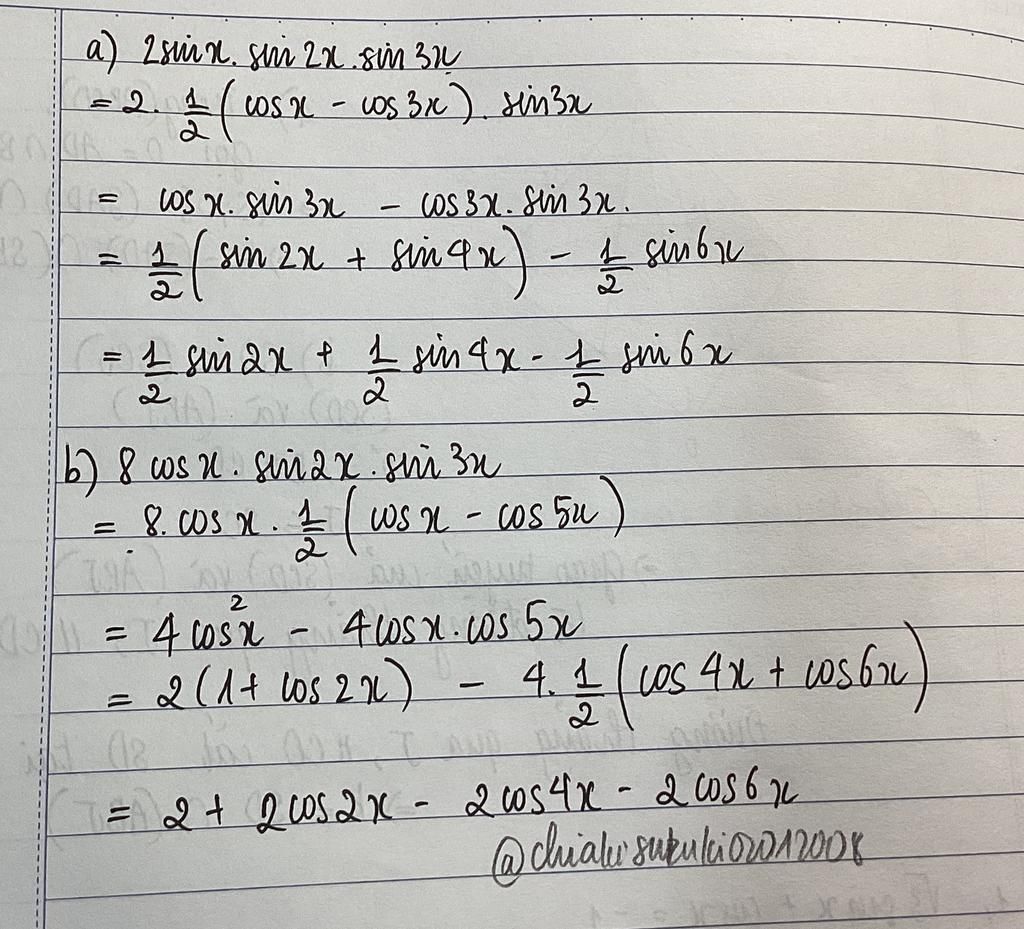 a) 2sin x. sin 2x. sin 3x
= 2. 1/2 (cos x - cos 3x). sin3x
= cos x. sin 3x - cos3x. sin 3x.
= 1/2 (sin 2x + sin 4x) - 1/2 sin6x
= 1/2 sin 2x + 1/2 sin 4x - 1/2 sin 6x
b) 8 cos x. sin2x. sin 3x
= 8. cos x. 1/2 (cos x - cos 5x)
= 4 cos²x - 4cosx.cos 5x
= 2(1+ cos 2x) - 4. 1/2 (cos 4x + cos6x)
= 2 + 2cos2x - 2cos4x - 2cos6x